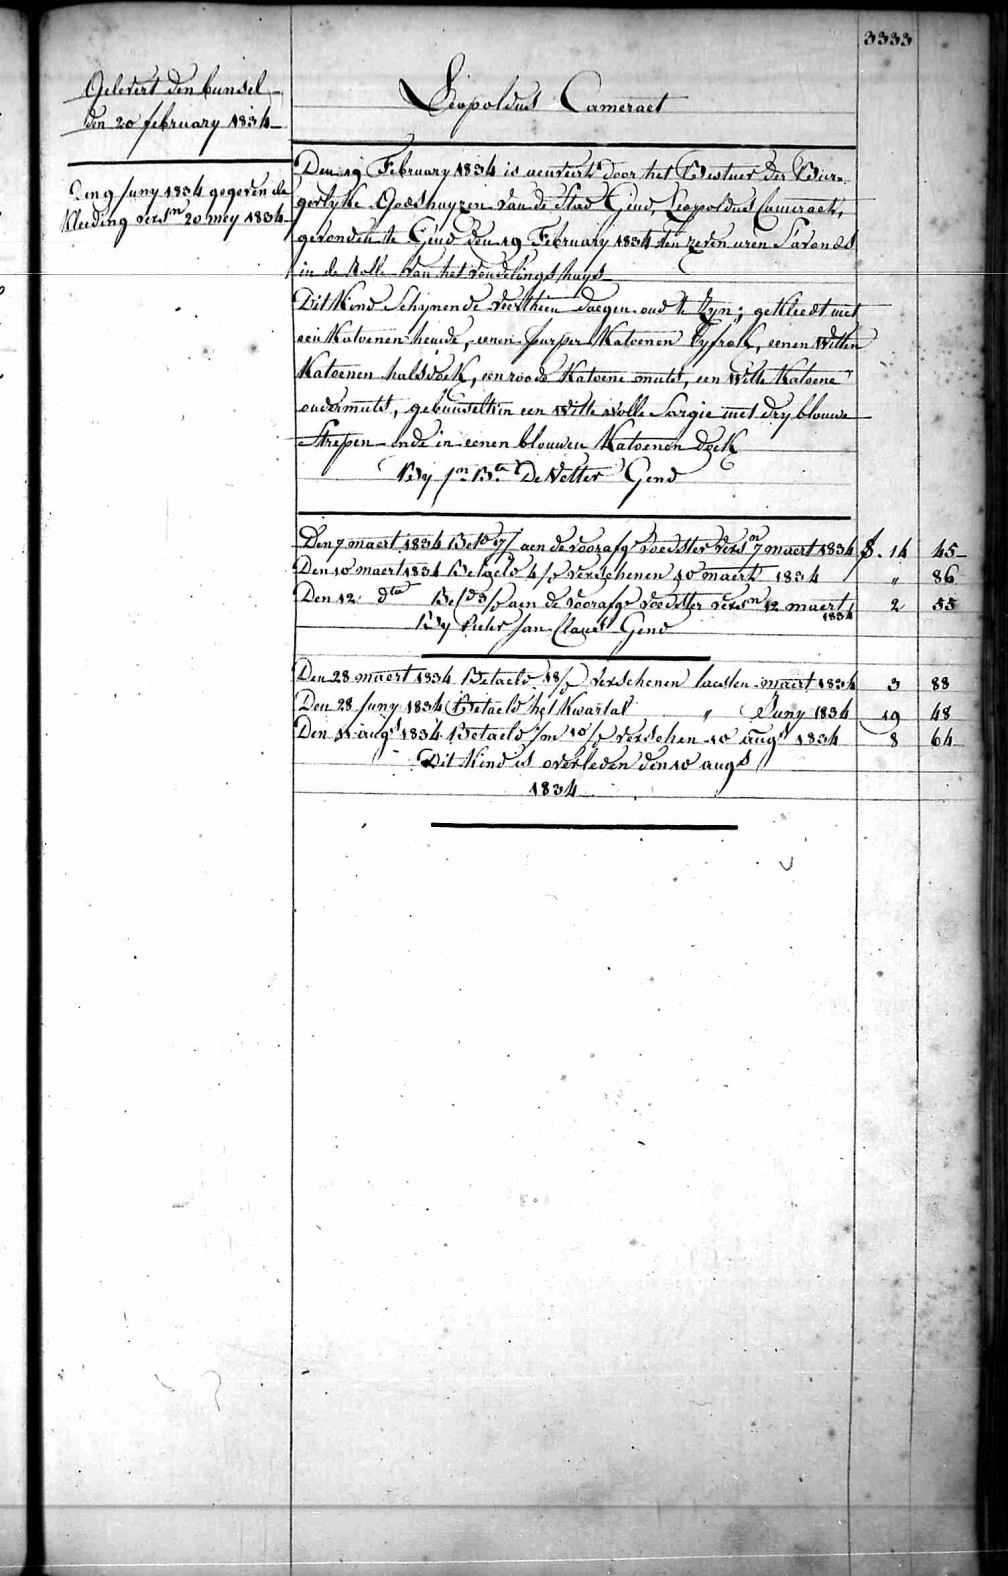 3333
Gelevert den bunsel
den 20 february 1834
Den 9 Juny 1834 gegeven de
Kleeding versn 20 mey 1834
Leopoldus Cameraet
Den 19 February 1834 is aenveert door het Bestuer der Bur-
gerlyke Godshuyzen van de Stad Gend, Leopoldus Cameraet,
gevonden te Gend den 19 February 1834 ten zeven uren Savonds
in de Rolle van het vondelingshuys
Dit Kind Schynende veerthien daegen oud te Zyn; gekleedt met
een Katoenen hemde, eenen purper Katoenen Lyfrok, eenen Witten
Katoenen halsdoek, een roode Katoene muts, een Witte Katoene
ondermuts, gebunselt in een Witte Wolle Sargie met dry blauwe
Strepen ende in eenen blauwen Katoenen doek
By Jn Bta De Vetter Gend
Den 7 maert 1834 Betd 17/ aen de voorafge voedster versn 7 maert 1834 f. 14 45
Den 10 maert 1834 Betaeld 4/ verschenen 10 maert 1834 " 86
Den 12 dto Betd 3/ aen de voorafge voedster versn 12 maert 1834 2 55
By Pieter Jan Claus Gend
Den 28 maert 1834 Betaeld 18/ verschenen laesten maert 1834 3 88
Den 28 Juny 1834 Betaeld het Kwartal " Juny 1834 19 48
Den 11 augt 1834 Betaeld 1m 10/ verschen 10 augt 1834 8 64
Dit Kind is overleden den 10 augt
1834